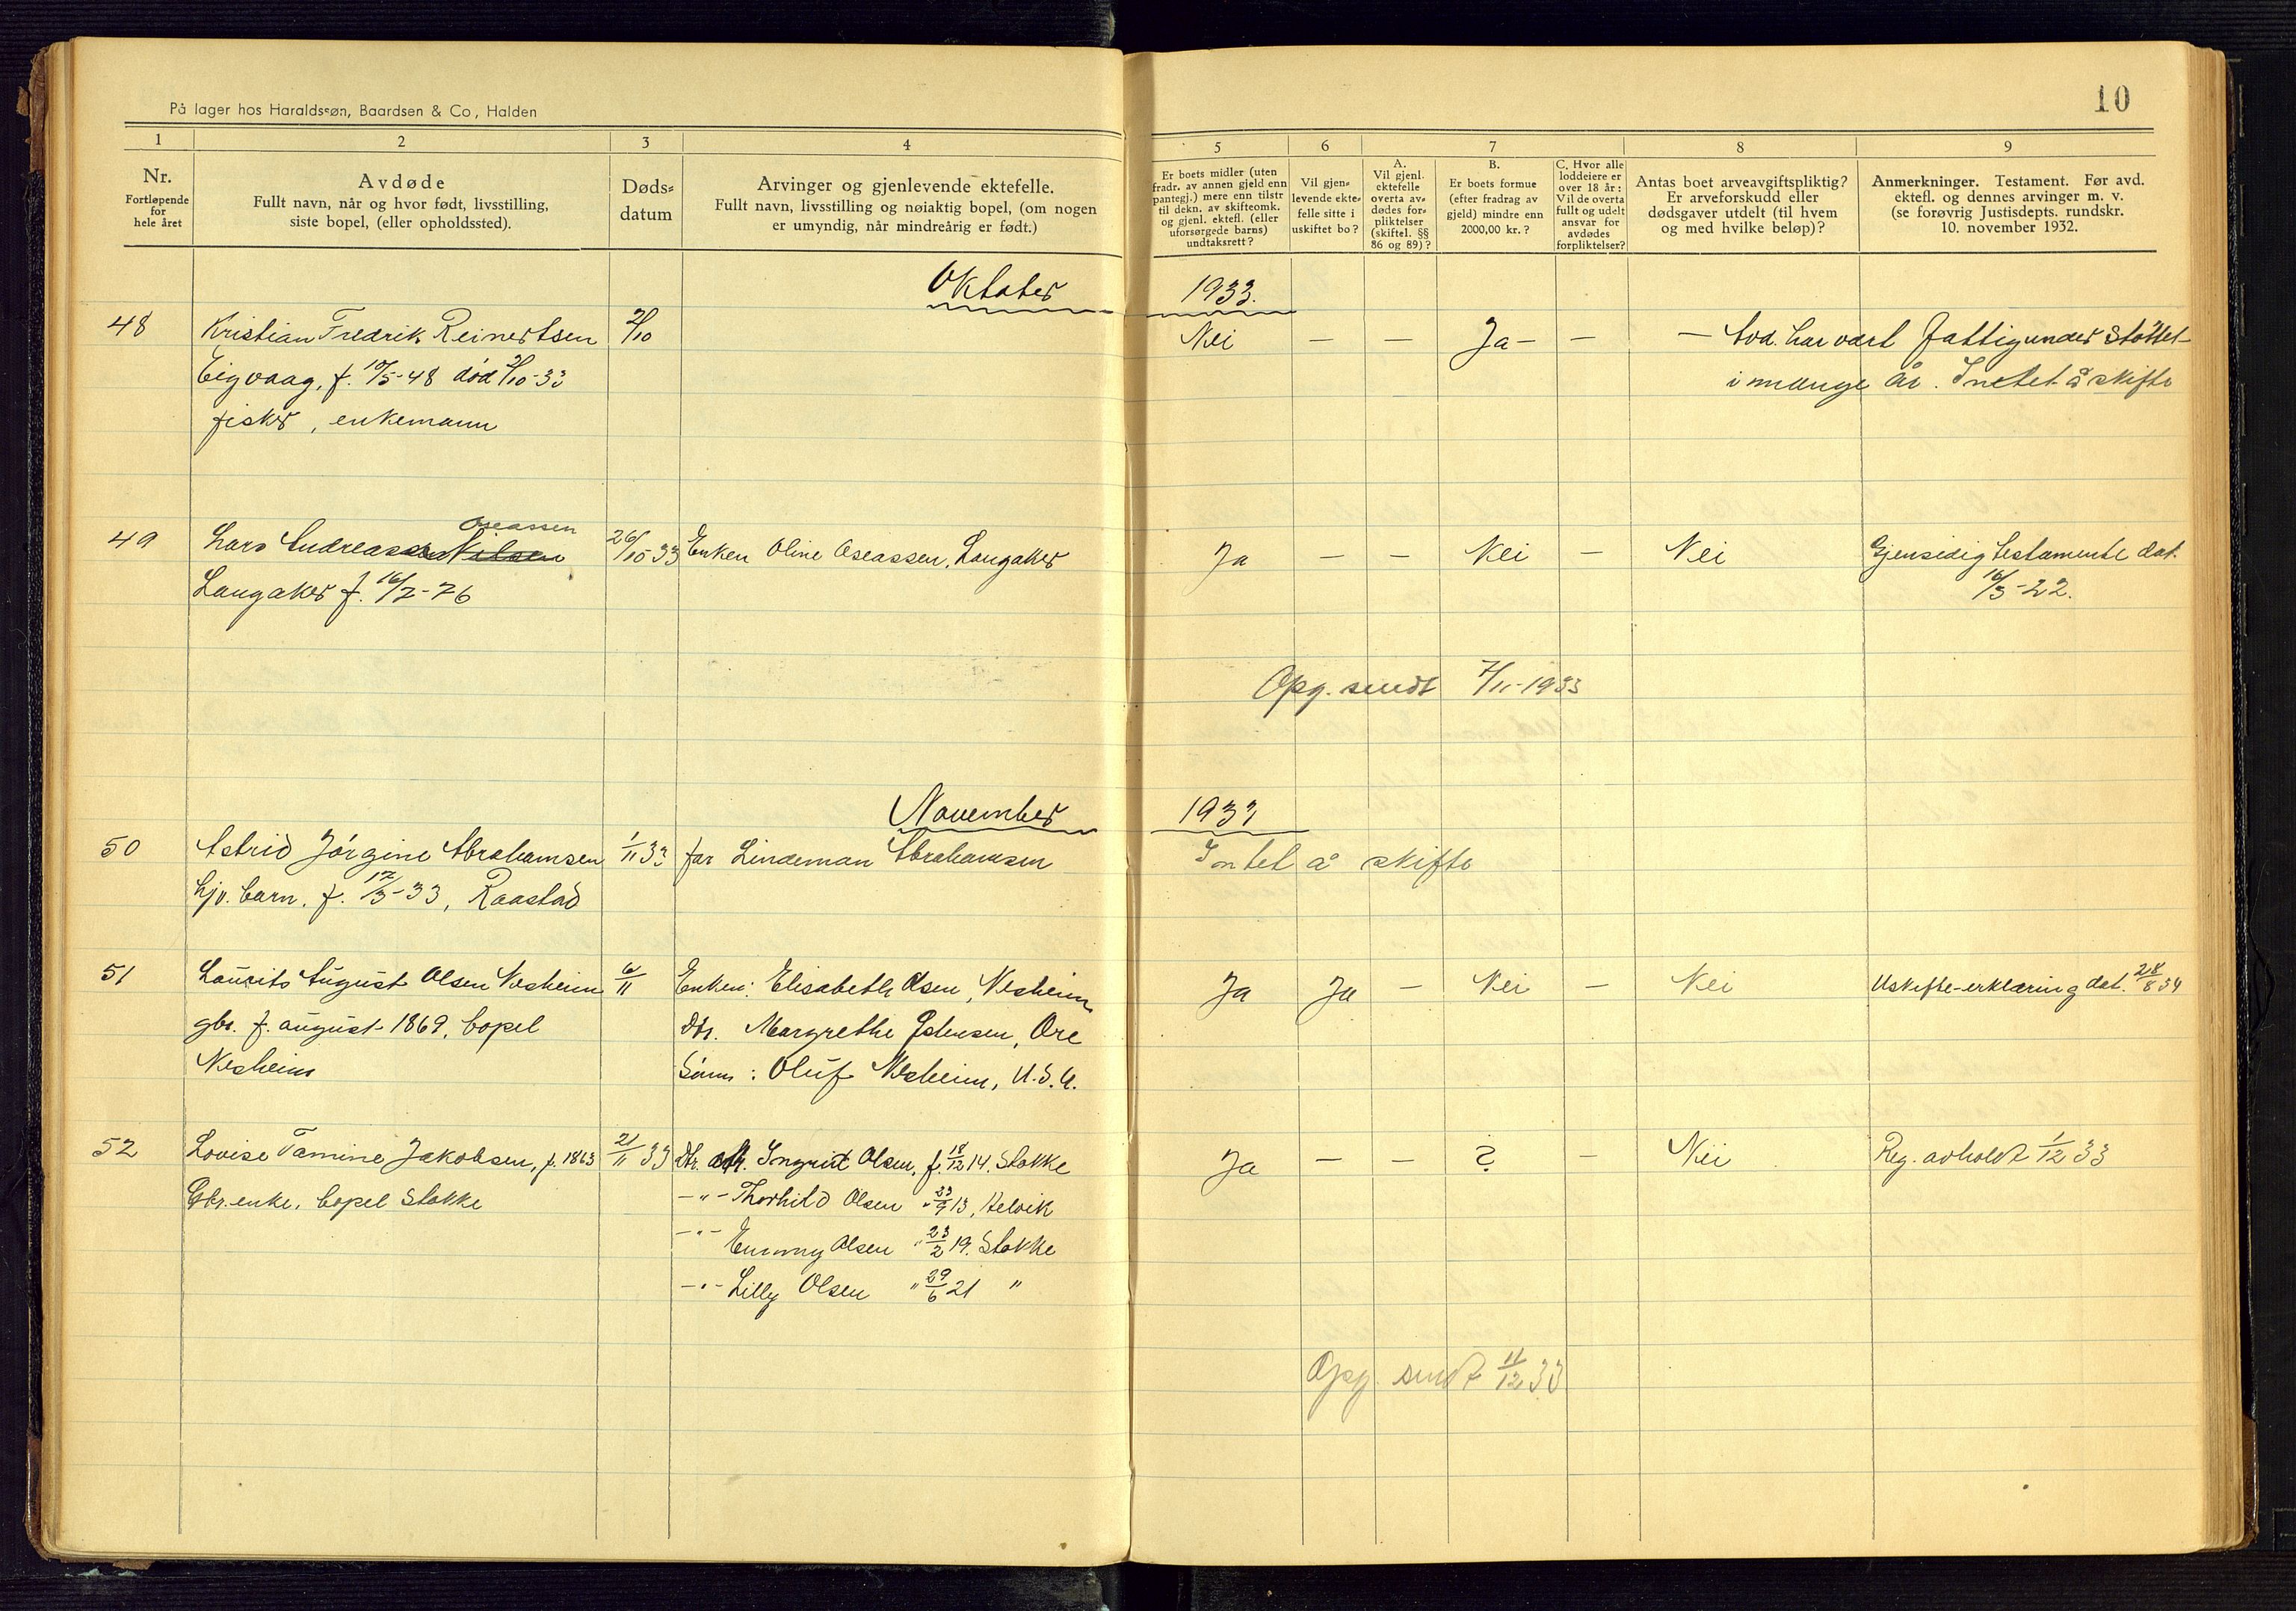 På lager hos Haraldssøn, Baardsen & Co, Halden
10
1 2 3 4 5 6 7 8 9
Nr.
Fortløpende
for
hele året
Avdøde
Fullt navn, når og hvor født, livsstilling,
siste bopel, (eller opholdssted).
Døds-
datum
Arvinger og gjenlevende ektefelle.
Fullt navn, livsstilling og nøiaktig bopel, (om nogen
er umyndig, når mindreårig er født.)
Er boets midler (uten
fradr. av annen gjeld enn
pantegj.) mere enn tilstr
til dekn. av skifteomk.
og gjenl. ektefl. (eller
uforsørgede barns)
undtaksrett?
Vil gjen-
levende ekte-
felle sitte i
uskiftet bo?
A.
Vil gjenl.
ektefelle
overta av-
dødes for-
pliktelser
(skiftel. §§
86 og 89)?
B.
Er boets formue
(efter fradrag av
gjeld) mindre enn
2000,00 kr.?
C. Hvor alle
loddeiere er
over 18 år:
Vil de overta
fullt og udelt
ansvar for
avdødes
forpliktelser?
Antas boet arveavgiftspliktig?
Er arveforskudd eller
dødsgaver utdelt (til hvem
og med hvilke beløp)?
Anmerkninger. Testament. Før avd.
ektefl. og dennes arvinger m. v.
(se forøvrig Justisdepts. rundskr.
10. november 1932.
Oktober 1933.
48 Kristian Fredrik Reinertsen 2/10 Nei — — Ja — — — Avd. har vært fattigunderstøttet
Eigvaag, f. 10/5-48 død 2/10-33 i mange år. Intet å skifte
fisker, enkemann
Oseassen
49 Lars Andreassen Nilsen 26/10 33 Enken Oline Oseassen, Langaker Ja — — Nei — Nei Gjensidig testamente dat.
Langaker f. 16/2-76 16/3-22.
Opg. sendt 7/11-1933
November 1933
50 Astrid Jørgine Abrahamsen 1/11 33 far Lindeman Abrahamsen Intet å skifte
hjv. barn, f. 12/3-33, Raastad
51 Laurits August Olsen Nesheim 6/11 Enken: Elisabeth Olsen, Nesheim Ja Ja — Nei — Nei Uskifte-erklæring dat. 28/8 34
gbr. f. august 1869, bopel dtr. Margrethe Estensen, Ore
Nesheim Sønn: Oluf Nesheim, U.S.A.
52 Lovise Tamine Jakobsen, f. 1863 21/11 33 Dtr. dtr. Ingrid Olsen, f. 18/12 14. Stokke Ja — — ? — Nei Reg. avholdt 1/12 33
Gbr. enke, bopel Stokke —"— Thorhild Olsen " 23/9 13, Helvik
—"— Emmy Olsen " 23/2 19. Stokke
—"— Lilly Olsen " 29/6 21 "
Opg. sendt 11/12 33